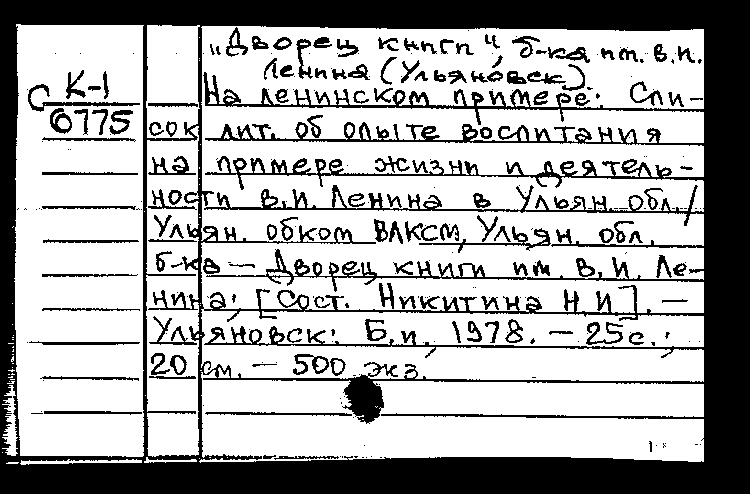 „Дворец книги", б-ка им. В.И.
Ленина (Ульяновск).
С К-1
6775
На ленинском примере: Спи-
сок лит. об опыте воспитания
на примере жизни и деятель-
ности В.И. Ленина в Ульян. обл./
Ульян. обком ВЛКСМ, Ульян. обл.
б-ка — Дворец книги им. В.И. Ле-
нина; [Сост. Никитина Н.И]. —
Ульяновск: Б.и., 1978. — 25с.;
20 см. — 500 экз.